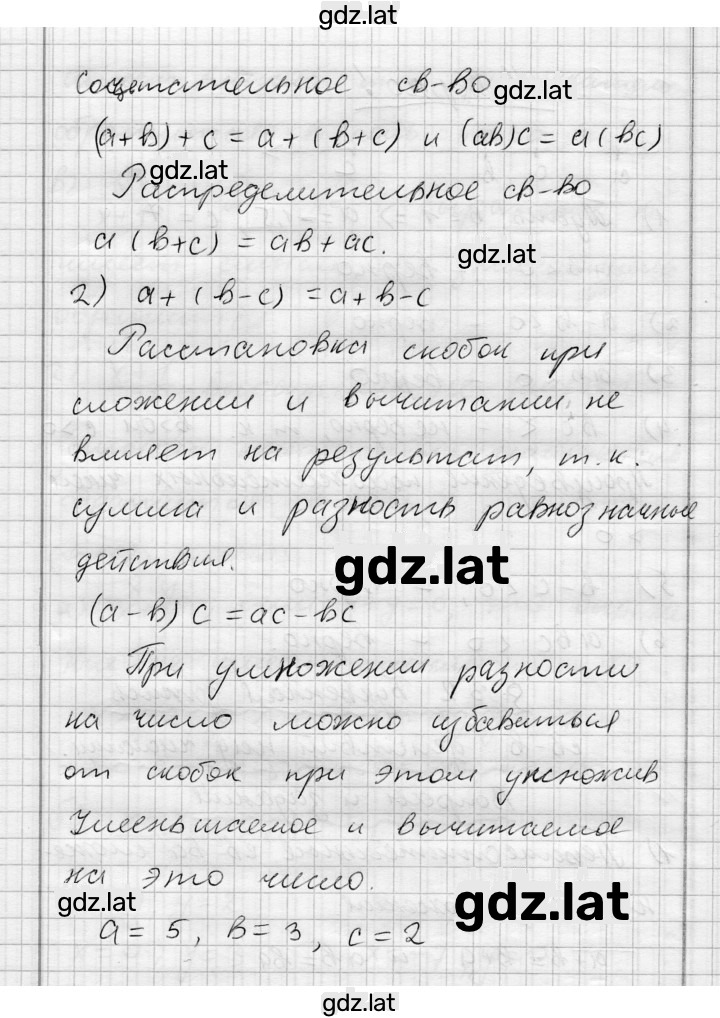 gdz.lat
Сочетательное св-во
gdz.lat
(а+в)+с=а+(в+с) и (ав)с=а(вс)
gdz.lat
Распределительное св-во
а(в+с)=ав+ас.
gdz.lat
2) а+(в-с)=а+в-с
Расстановка скобок при
сложении и вычитании не
влияет на результат, т.к.
сумма и разность равнозначные
действия.
gdz.lat
(а-в)с=ас-вс
При умножении разности
на число можно избавиться
от скобок при этом умножив
Уменьшаемое и вычитаемое
на это число.
gdz.lat
gdz.lat
а=5, в=3, с=2
gdz.lat